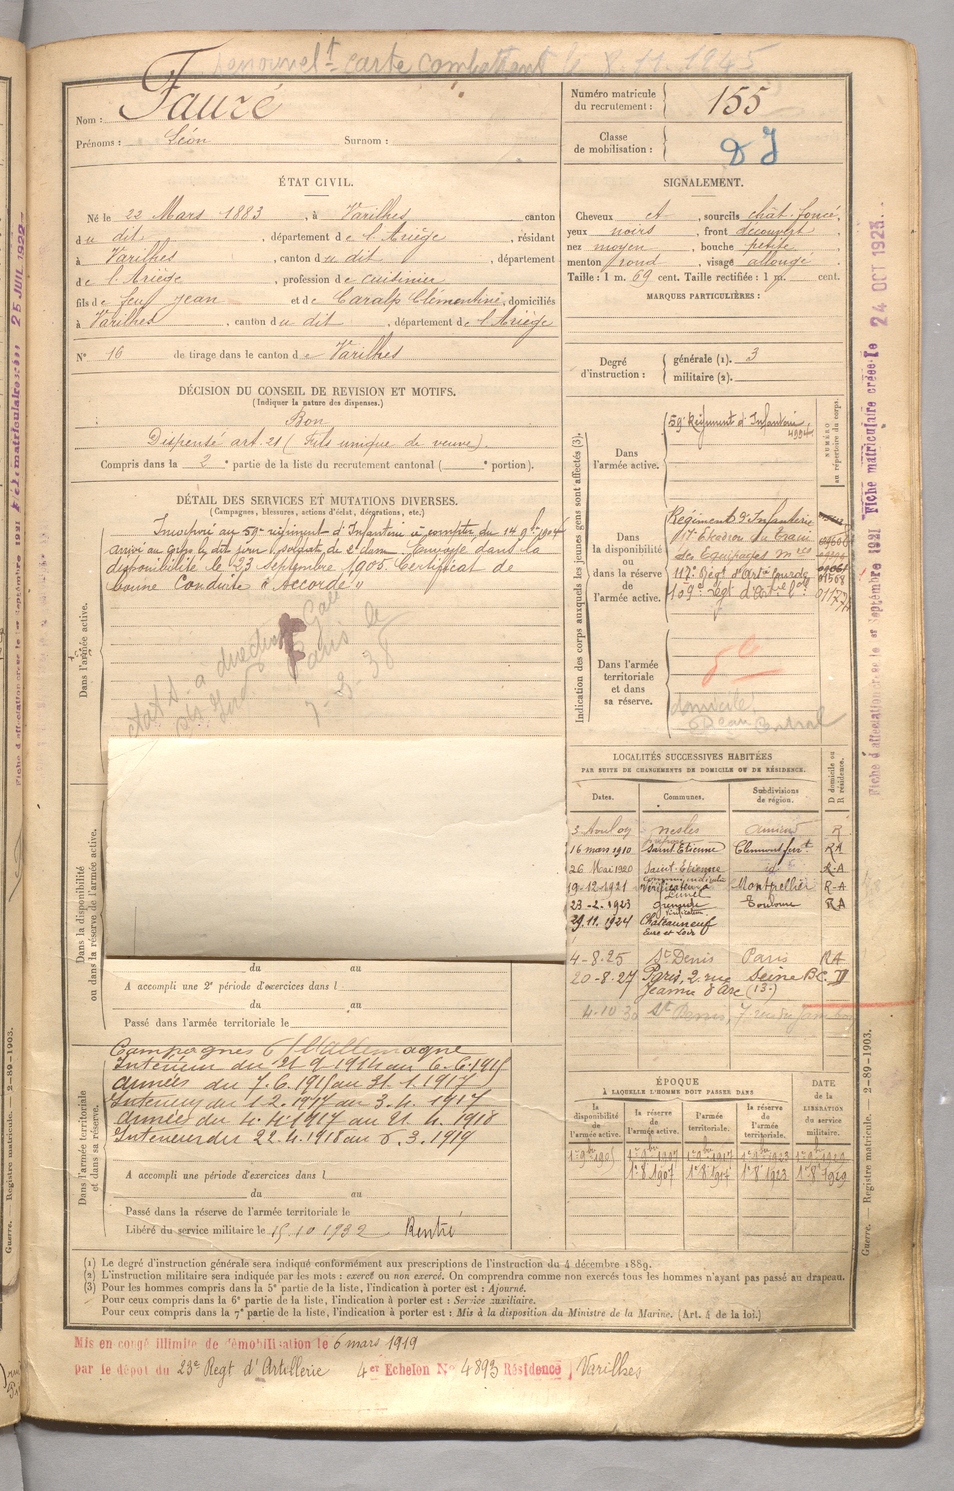 personnel carte combattant le 8.11.1945
Nom : Fauré
Prénoms : Léon Surnom :
Numéro matricule du recrutement : 155
Classe de mobilisation : DJ
ÉTAT CIVIL.
Né le 22 Mars 1883, à Varilhes canton
du dit, département de l'Ariège, résidant
à Varilhes, canton du dit, département
de l'Ariège, profession de cuisinier
fils de feu Jean et de Caralp Clémentine, domiciliés
à Varilhes, canton du dit, département de l'Ariège
N° 16 de tirage dans le canton de Varilhes
SIGNALEMENT.
Cheveux ct, sourcils chât. foncé,
yeux noirs, front découvert
nez moyen, bouche petite,
menton rond, visage allongé.
Taille : 1 m. 69 cent. Taille rectifiée : 1 m. cent.
MARQUES PARTICULIÈRES :
Degré d'instruction : générale (1). 3
militaire (2).
DÉCISION DU CONSEIL DE REVISION ET MOTIFS.
(Indiquer la nature des dispenses.)
Bon
Dispensé art. 21 (Fils unique de veuve)
Compris dans la 2e partie de la liste du recrutement cantonal ( e portion).
DÉTAIL DES SERVICES ET MUTATIONS DIVERSES.
(Campagnes, blessures, actions d'éclat, décorations, etc.)
Dans l'armée active.
Incorporé au 59e régiment d'Infanterie à compter du 14 9bre 1904
arrivé au Corps le dit jour, soldat de 2e classe. Envoyé dans la
disponibilité le 23 Septembre 1905. Certificat de
bonne Conduite "Accordé"
Paris le
7-3-38
Indication des corps auxquels les jeunes gens sont affectés (3).
NUMÉRO au répertoire du corps.
Dans l'armée active.
59e Régiment d'Infanterie
Dans la disponibilité ou dans la réserve de l'armée active.
Régiment d'Infanterie
17e Escadron du Train
des Equipages mres
117e Régt d'Artie Lourde
109e Régt d'Artie Lde
Dans l'armée territoriale et dans sa réserve.
domicile
Beau Central
LOCALITÉS SUCCESSIVES HABITÉES
PAR SUITE DE CHANGEMENTS DE DOMICILE OU DE RÉSIDENCE.
Dates. Communes. Subdivisions de région. D domicile ou R résidence.
3 Avril 09 Nesles Amiens R
16 mars 1910 Saint-Etienne Clermont ferrt RA
26 Mai 1920 Saint-Etienne id R-A
19-12-1921 Lunel Montpellier R-A
23-2-1923 Toulouse RA
29.11.1924 Châteauneuf
Eure et Loir
4-8-25 St Denis Paris RA
20-8-27 Paris, 2 rue Seine BC D
Jeanne d'Arc (13e)
4.10 30 St Denis, 7 rue du Jambon
Dans la disponibilité ou dans la réserve de l'armée active.
du au
A accompli une 2e période d'exercices dans l
du au
Passé dans l'armée territoriale le
Dans l'armée territoriale et dans sa réserve.
Campagnes c/ l'Allemagne
Intérieur du 21 9 1914 au 6.6.1915
Armées du 7.6.1915 au 31.1.1917
Intérieur du 1.2.1917 au 3.4.1917
Armées du 4.4.1917 au 21.4.1918
Intérieur du 22.4.1918 au 6.3.1919
A accompli une période d'exercices dans l
du au
Passé dans la réserve de l'armée territoriale le
Libéré du service militaire le 15.10 1932 Rentré
ÉPOQUE
À LAQUELLE L'HOMME DOIT PASSER DANS
la disponibilité de l'armée active. la réserve de l'armée active. l'armée territoriale. la réserve de l'armée territoriale.
DATE de la LIBÉRATION du service militaire.
1er 9bre 1905 1er 9bre 1907 1er 9bre 1917 1er 9bre 1923 1er 9bre 1929
1er 8 1907 1er 8 1917 1er 8 1923 1er 8 1929
(1) Le degré d'instruction générale sera indiqué conformément aux prescriptions de l'instruction du 4 décembre 1889.
(2) L'instruction militaire sera indiquée par les mots : exercé ou non exercé. On comprendra comme non exercés tous les hommes n'ayant pas passé au drapeau.
(3) Pour les hommes compris dans la 5e partie de la liste, l'indication à porter est : Ajourné.
Pour ceux compris dans la 6e partie de la liste, l'indication à porter est : Service auxiliaire.
Pour ceux compris dans la 7e partie de la liste, l'indication à porter est : Mis à la disposition du Ministre de la Marine. (Art. 4 de la loi.)
Mis en congé illimité de démobilisation le 6 mars 1919
par le dépôt du 23e Regt d'Artillerie 4er Echelon N° 4893 Résidence Varilhes
Guerre. — Registre matricule. — 2-89-1903.
Fiche d'affectation créée le 1er Septembre 1921 Fiche matriculaire créée le 24 OCT 1923
Guerre. — Registre matricule. 2-89-1903.
25 JUIL 1922